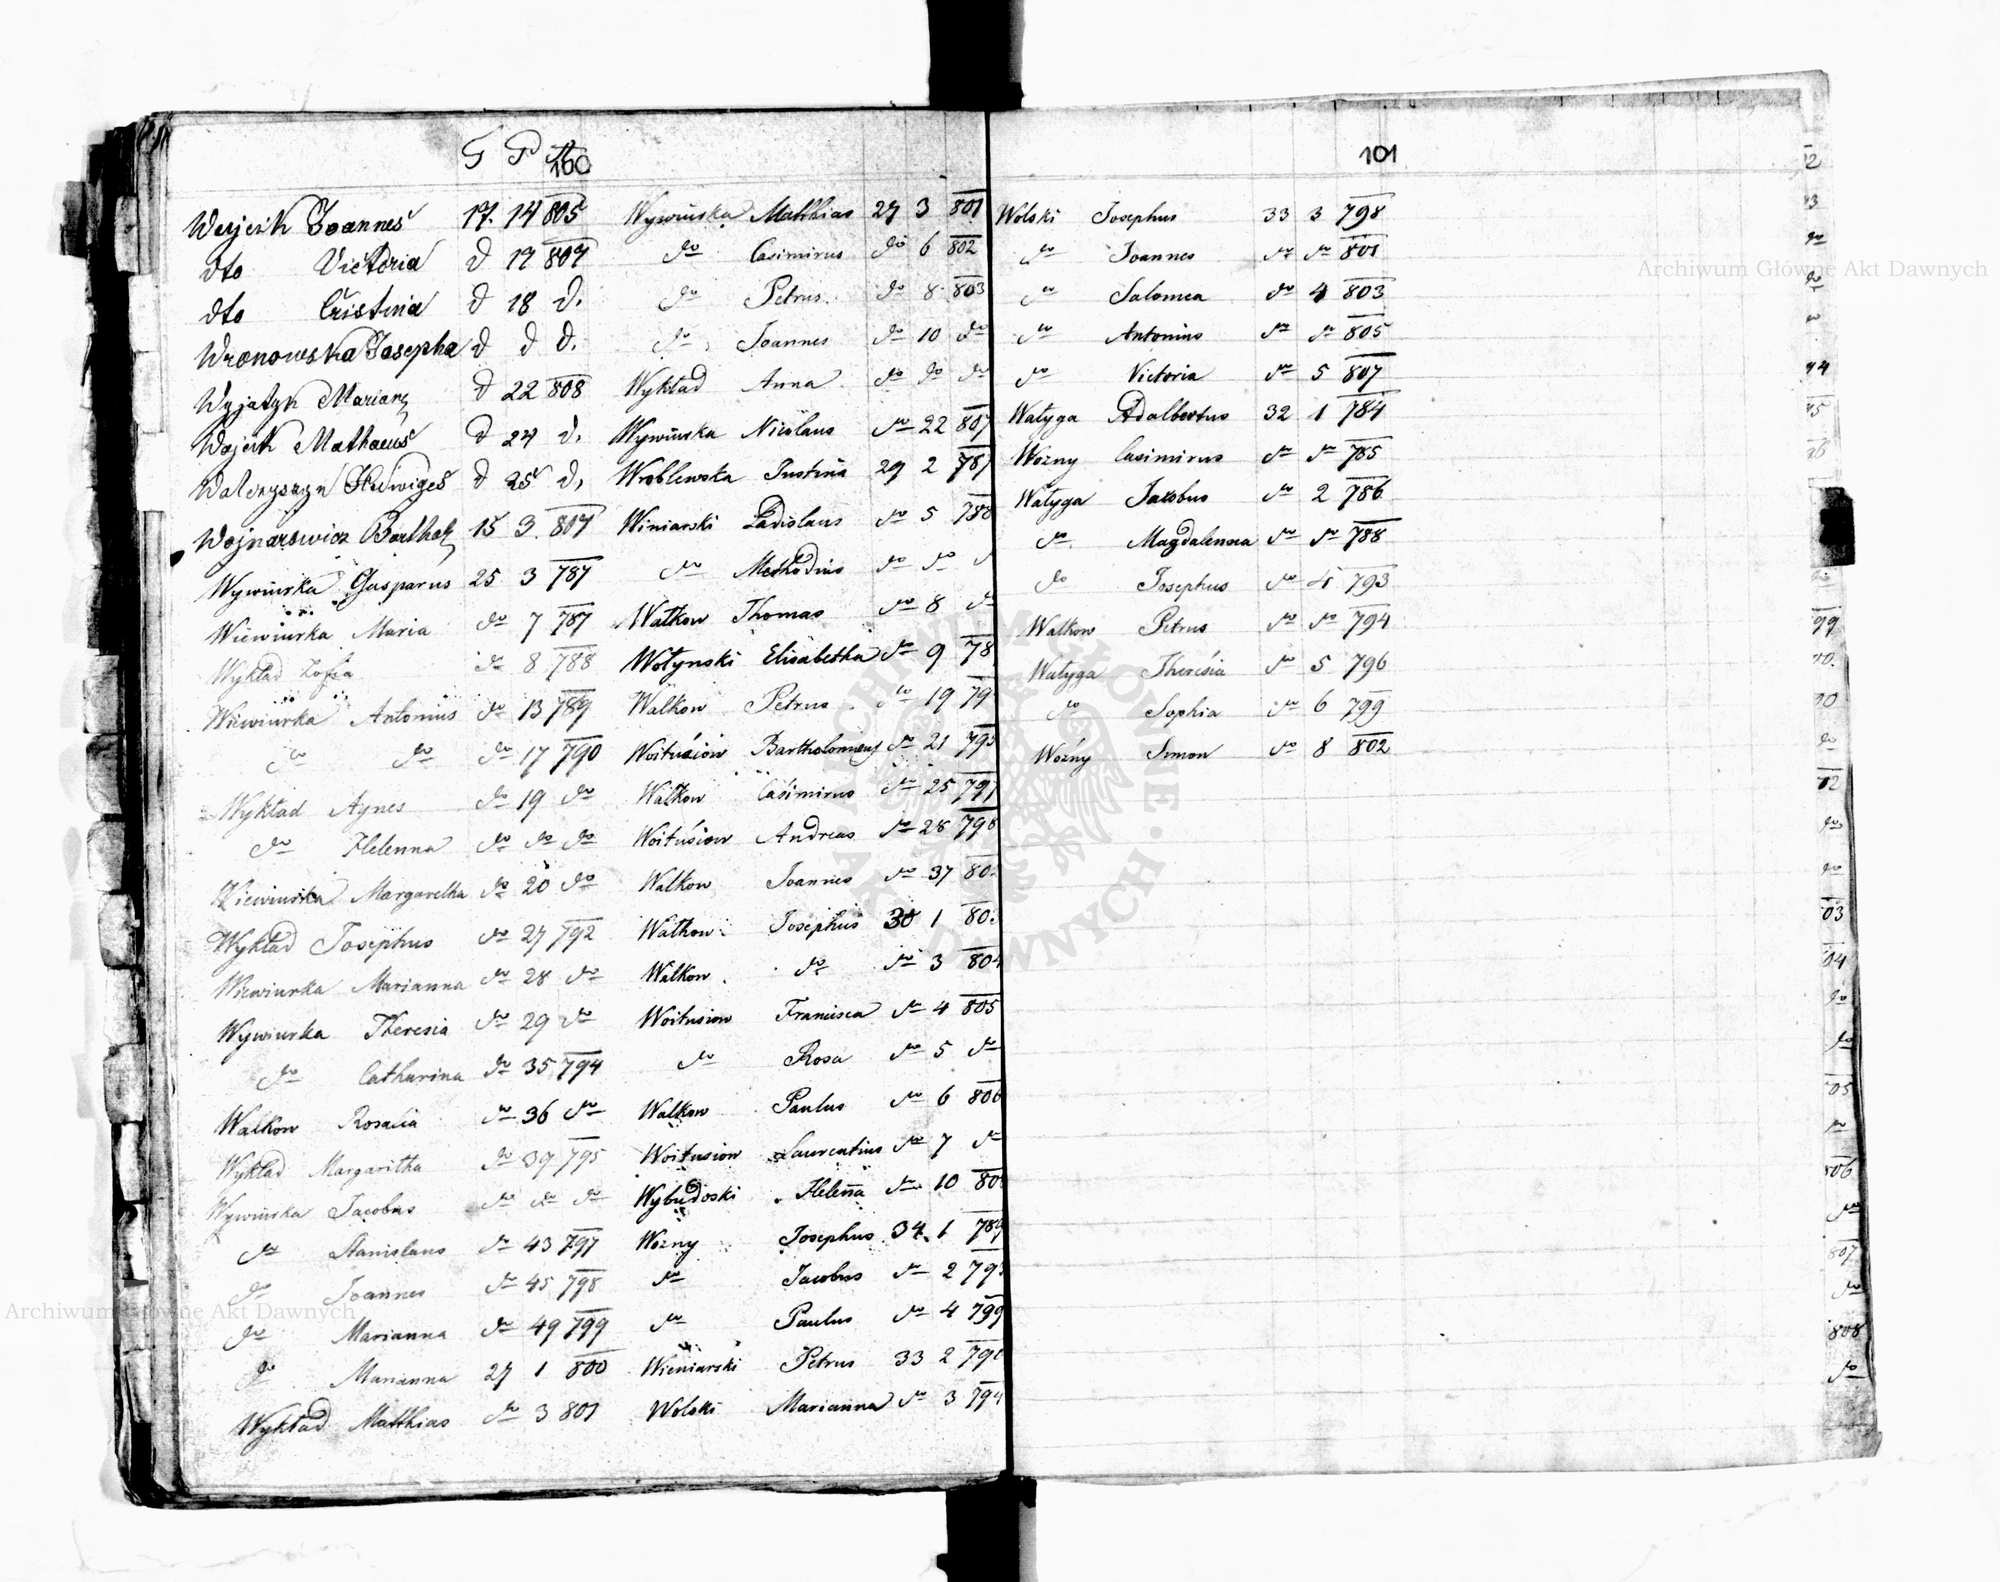 G P
100
Wojcik Joannes 17. 14 805
dto Victoria d 17 807
dto Cristina d 18 d.
Wronowska Josepha d d d.
Wyjatyk Mariana d 22 808
Wojcik Mathaeus d 24 d.
Hedwiges d 25 d.
Wojnarowicz Barthol 15 3. 807
Wywiurka Gasparus 25 3 787
Wiewiurka Maria do 7 787
Wykład Zofia do 8 788
Wiewiurka Antonius do 13 789
do do do 17 790
Wykład Agnes do 19 do
do Helenna do do do
Wiewiurka Margaretha do 20 do
Wykład Josephus do 27 792
Wiewiurka Marianna do 28 do
Wywiurka Theresia do 29 do
do Catharina do 35 794
Walkow Rosalia do 36 do
Wykład Margaritha do 39 795
Wywiurka Jacobus do do do
do Stanislaus do 43 797
do Joannes do 45 798
do Marianna do 49 799
do Marianna 27 1 800
Wykład Matthias do 3 801
Wywiurska Matthias 27 3 801
do Casimirus do 6 802
do Petrus do 8 803
do Joannes do 10 do
Wykład Anna do do do
Wywiurka Nicolaus do 22 807
Wroblewska Justina 29 2 787
Winiarski Ladislaus do 5 788
do Methodius do do
Watkow Thomas do 8 do
Wołynski Elisabetha do 9 78
Walkow Petrus do 19 79
Woitusiow Bartholomeus do 21 795
Watkow Casimirus do 25 797
Woitusiow Andreas do 28 798
Walkow Joannes do 37 80
Watkow Josephus 30 1 80
Walkow do do 3 804
Woitusiow Francisca do 4 805
do Rosa do 5 do
Walkow Paulus do 6 806
Woitusiow Laurentius do 7 do
Wybudoski Helena do 10 80
Wozny Josephus 34 1 789
do Jacobus do 2 79
do Paulus do 4 799
Wieniarski Petrus 33 2 79
Wolski Marianna do 3 794
101
Wolski Josephus 33 3 798
do Joannes do do 801
do Salomea do 4 803
do Antonius do do 805
do Victoria do 5 807
Wałyga Adalbertus 32 1 784
Wozny Casimirus do do 785
Wałyga Jacobus do 2 786
do Magdalenna do do 788
do Josephus do 4 793
Walkow Petrus do do 794
Wałyga Theresia do 5 796
do Sophia do 6 799
Woźny Simon do 8 802
Archiwum Główne Akt Dawnych
Archiwum Główne Akt Dawnych
ARCHIWUM GŁÓWNE AKT DAWNYCH
03
04
do
do
05
do
06
do
807
do
808
do